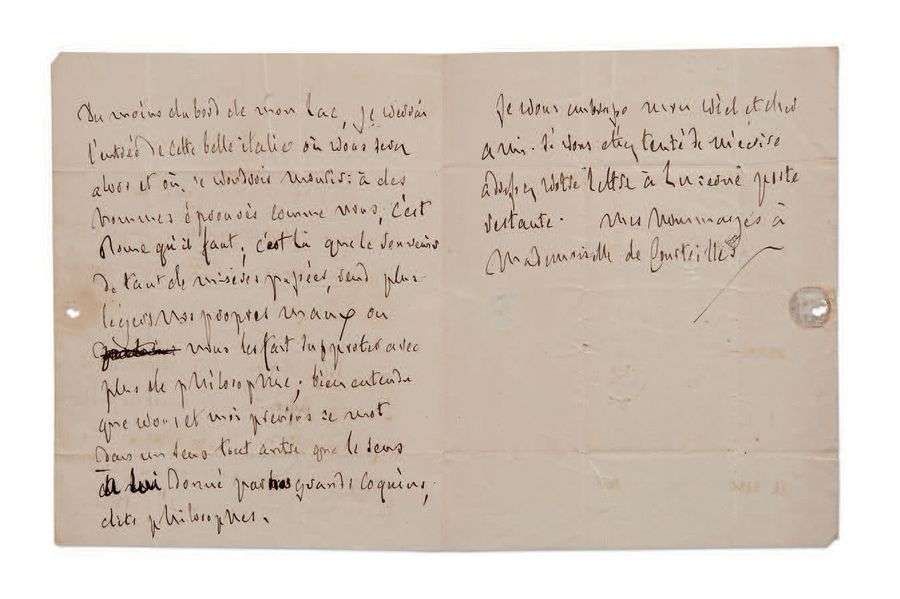 Du moins du bord de mon Lac, je verrai
l'entrée de cette belle italie où vous serez
alors et où je voudrois mourir: à des
hommes éprouvés comme nous, c'est
Rome qu'il faut; c'est là que le souvenir
de tant de misères passées, rend plus
légers nos propres maux ou
nous les fait supporter avec
plus de philosophie; bien entendu
que vous et moi prenons ce mot
dans un sens tout autre que le sens
à lui donné par nos grands coquins,
dits philosophes.
Je vous embrasse mon vieil et cher
ami. Si vous étiez tenté de m'écrire
adressez votre lettre à Lucerne poste
restante. Mes hommages à
Mademoiselle de Courteilles